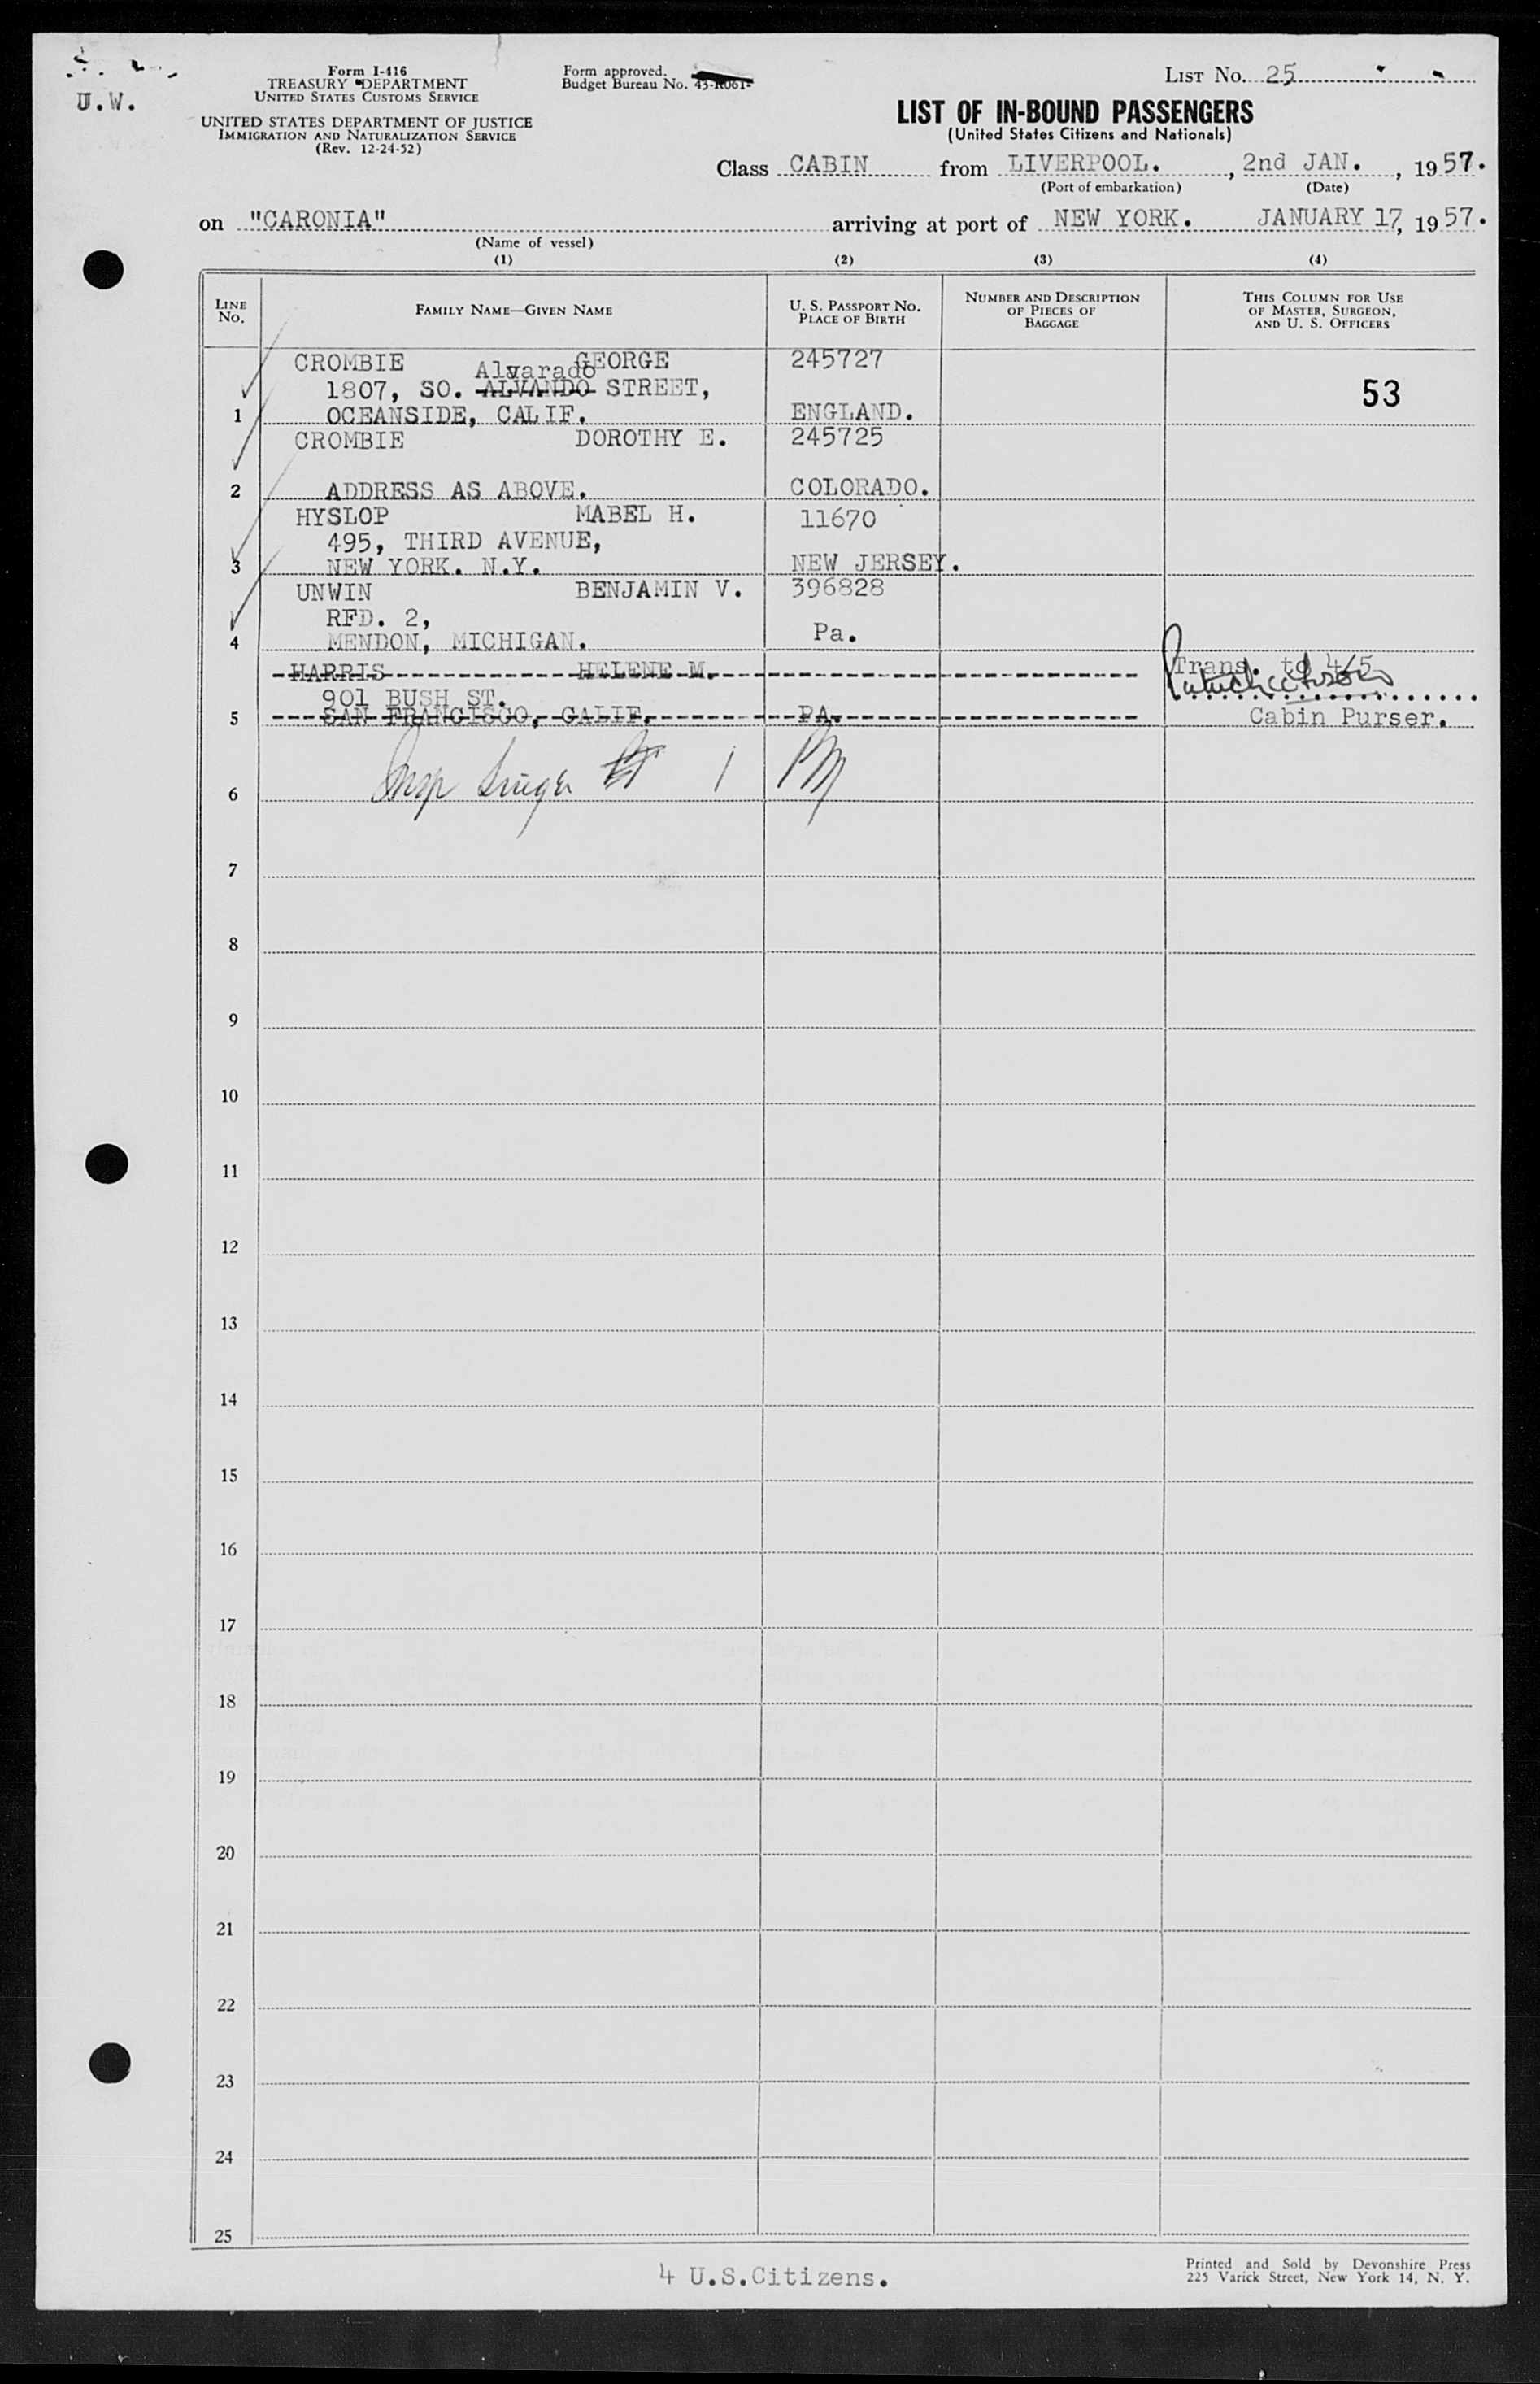 U.W.
Form I-416
TREASURY DEPARTMENT
UNITED STATES CUSTOMS SERVICE
UNITED STATES DEPARTMENT OF JUSTICE
IMMIGRATION AND NATURALIZATION SERVICE
(Rev. 12-24-52)
Form approved.
Budget Bureau No. 43-R061-
LIST No. 25
LIST OF IN-BOUND PASSENGERS
(United States Citizens and Nationals)
Class CABIN from LIVERPOOL., 2nd JAN., 1957.
(Port of embarkation) (Date)
on "CARONIA" arriving at port of NEW YORK. JANUARY 17, 1957.
(Name of vessel)
(1) (2) (3) (4)
LINE No. FAMILY NAME—GIVEN NAME U. S. PASSPORT No. PLACE OF BIRTH NUMBER AND DESCRIPTION OF PIECES OF BAGGAGE THIS COLUMN FOR USE OF MASTER, SURGEON, AND U. S. OFFICERS
CROMBIE GEORGE 245727
Alvarado
1807, SO. ALVANDO STREET, 53
1 OCEANSIDE, CALIF. ENGLAND.
CROMBIE DOROTHY E. 245725
2 ADDRESS AS ABOVE. COLORADO.
HYSLOP MABEL H. 11670
495, THIRD AVENUE,
3 NEW YORK. N.Y. NEW JERSEY.
UNWIN BENJAMIN V. 396828
RFD. 2,
4 MENDON, MICHIGAN. Pa.
HARRIS HELENE M. Trans. to 4/5
901 BUSH ST.
5 SAN FRANCISCO, CALIF. PA. Cabin Purser.
6 Insp
7
8
9
10
11
12
13
14
15
16
17
18
19
20
21
22
23
24
25
4 U.S.Citizens.
Printed and Sold by Devonshire Press
225 Varick Street, New York 14, N. Y.